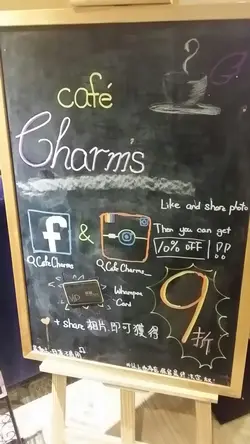 café
Charm's
Like and share photo
f & Then you can get
Q Cafe Charms Q Cafe Charms__ 10% OFF !!
Whampoa
Card
+ share 相片 即可獲得
9折